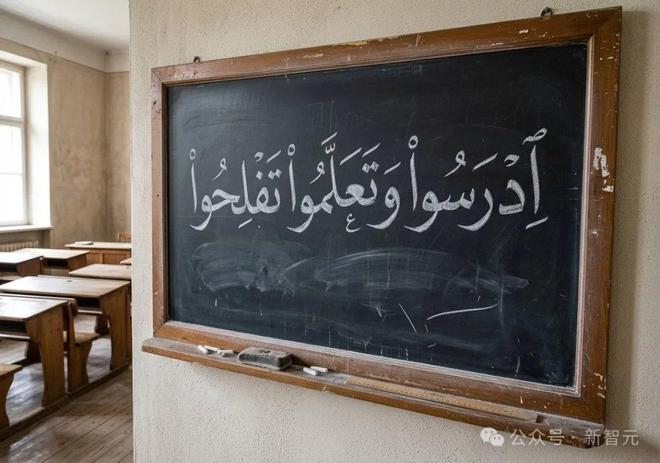 اِدْرَسُواْ وَتَعَلَّمُواْ تَفْلِحُواْ
ع
公众号 · 新智元